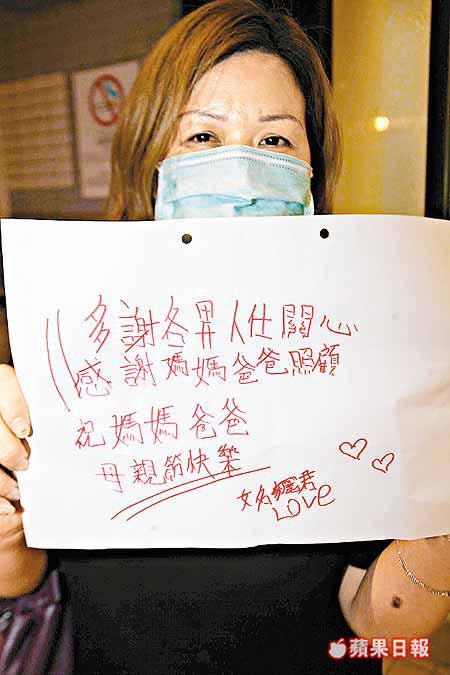 多謝各界人仕關心
感謝媽媽爸爸照顧
祝媽媽爸爸
母親節快樂
女
君
LOVE
蘋果日報